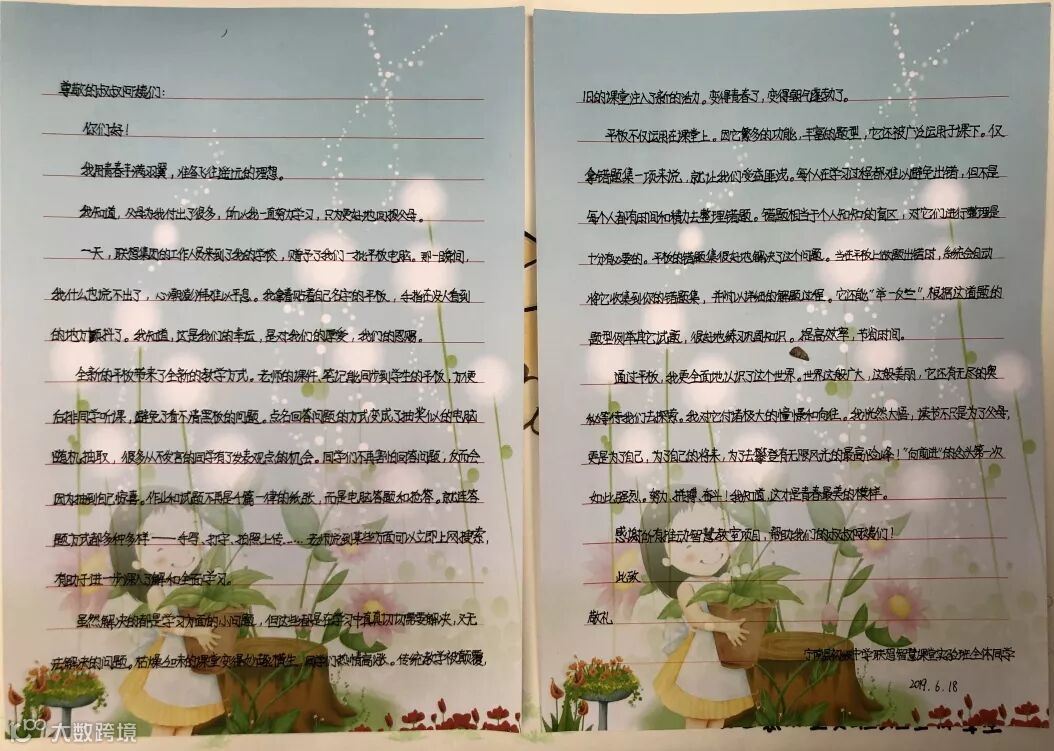 尊敬的叔叔阿姨们：
你们好！
我用青春丰满羽翼，准备飞往遥远的理想。
我知道，父母为我付出了很多，所以我一直努力学习，只为更好地回报父母。
一天，联想集团的工作人员来到了我的学校，赠予了我们一批平板电脑。那一瞬间，
我什么也说不出了，心潮澎湃难以平息。我拿着贴着自己名字的平板，手指在没人看到
的地方颤抖了。我知道，这是我们的幸运，是对我们的厚爱，我们的恩赐。
全新的平板带来了全新的教学方式。老师的课件、笔记能同步到学生的平板，方便
后排同学听课，避免了看不清黑板的问题。点名回答问题的方式变成了抽奖似的电脑
随机抽取，很多从不发言的同学有了发表观点的机会。同学们不再害怕回答问题，反而会
因为抽到自己惊喜。作业和试题不再是千篇一律的纸张，而是电脑答题和抢答。就连答
题方式都多种多样——夺号、打字、拍照上传……老师说到某些方面可以立即上网搜索，
有助于进一步深入了解和全面学习。
虽然解决的都是学习方面的小问题，但这些都是在学习中真真切切需要解决，又无
法解决的问题。枯燥乏味的课堂变得妙趣横生，同学们热情高涨。传统教学被颠覆，
旧的课堂注入了新的活力。变得青春了，变得朝气蓬勃了。
平板不仅运用在课堂上。因它繁多的功能，丰富的题型，它还被广泛运用于课下。仅
拿错题集一项来说，就让我们受益匪浅。每个人在学习过程都难以避免出错，但不是
每个人都有时间和精力去整理错题。错题相当于个人知识的盲区，对它们进行整理是
十分有必要的。平板的错题集很好地解决了这个问题。当在平板上做题出错时，系统会自动
将它收集到你的错题集，并附以详细的解题过程。它还能“举一反三”，根据这道题的
题型列举其它试题，很好地练习巩固知识。提高效率，节省时间。
通过平板，我更全面地认识了这个世界。世界这般广大，这般美丽，它还有无尽的奥
秘等待我们去探索。我对它付诸极大的憧憬和向往。我恍然大悟，读书不只是为了父母，
更是为了自己，为了自己的将来，为了去攀登有无限风光的最高险峰！“向前进”的念头第一次
如此强烈。努力、拼搏、奋斗！我知道，这才是青春最美的模样。
感谢所有推动智慧教室项目，帮助我们的叔叔阿姨们！
此致
敬礼
宁南县初级中学联想智慧课堂实验班全体同学
2019.6.18
大数跨境